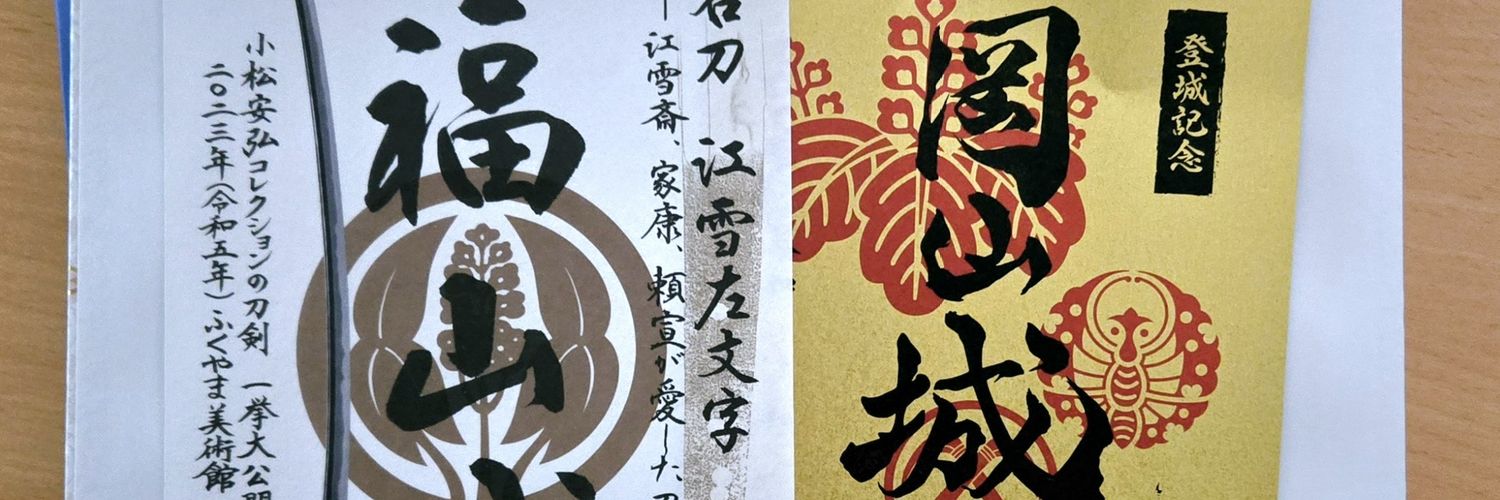 登城記念
岡山城
名刀 江雪左文字
ー江雪斎、家康、頼宣が愛した刀
福山
小松安弘コレクションの刀剣 一挙大公開
二〇二三年(令和五年)ふくやま美術館